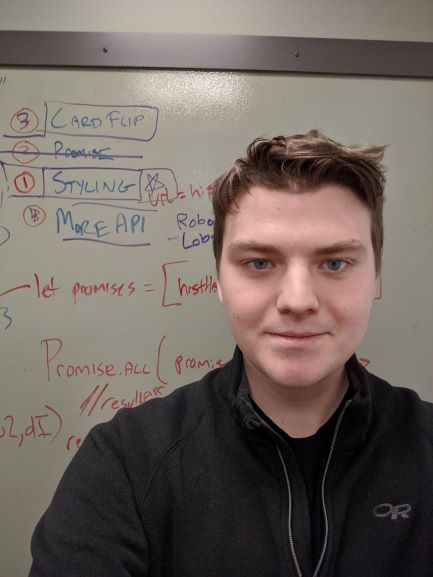 3 CARD FLIP
2 PROMISE
1 STYLING
4 MORE API
Robo
- Lob
let promises = [
Promise.ALL( promis
//result
OR